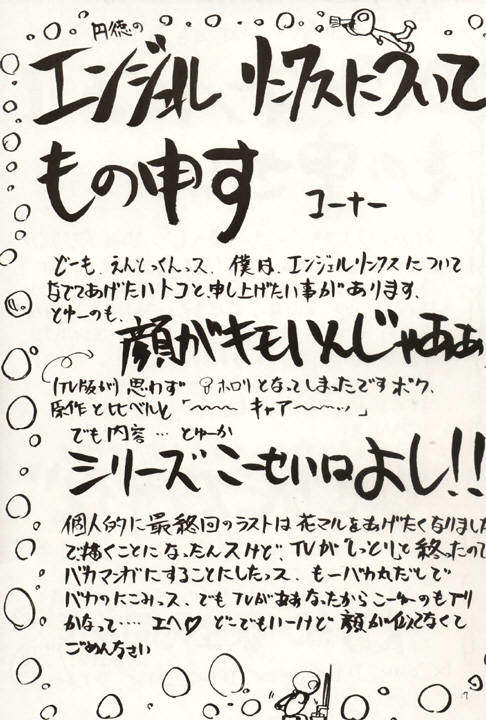 円徳の
エンジェル リンクスについて
もの申す コーナー
どーも、えんとっくんっス、僕は、エンジェルリンクスについて
なでてあげたいトコと、申し上げたい事があります、
とゆーのも、
顔がキモいんじゃあぁ
(TV版が) 思わず ホロリとなってしまったです ボク、
原作と比べると「〜〜〜 キャア〜〜〜ッ」
でも内容…とゅーか
シリーズこーせいはよし!!
個人的に最終回のラストは花マルをあげたくなりました
で描くことになったんスけど、TVが「しっとり」と終ったので
バカマンガにすることにしたっス、もーバカ丸だしで
バカのにこみっス、でもTVがああなったからこーゆーのも
かなって‥‥エヘ♡ どーでもいーけど 顔が似てなくて
ごめんなさい